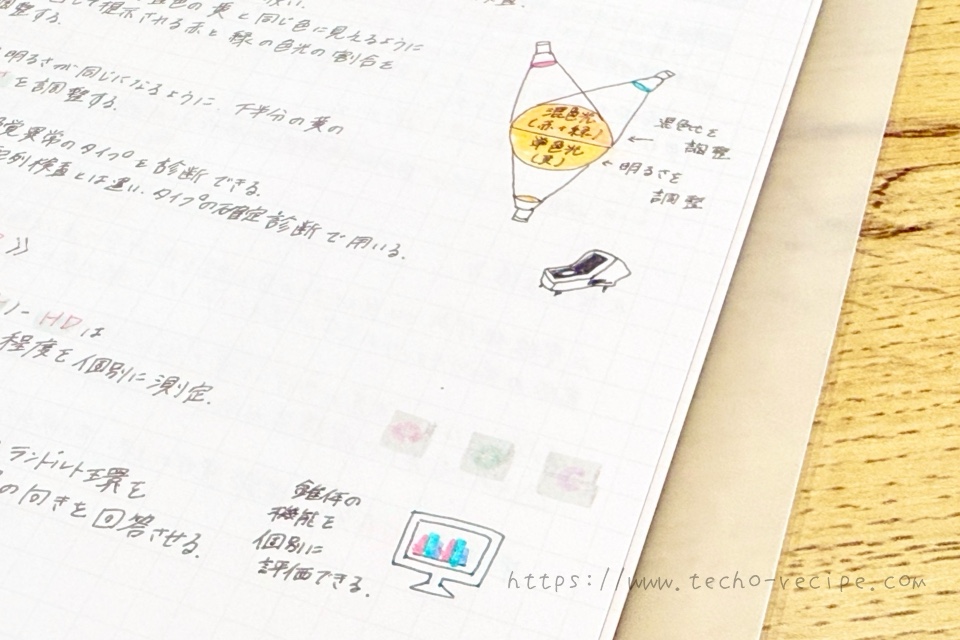 して提示される赤と緑の色光の割合を
調整する。
の黄と同じ色に見えるように
明るさが同じになるように、下半分の黄の
を調整する。
覚異常のタイプを診断できる。
配列検査とは違い、タイプの確定診断で用いる。
》
HDは
程度を個別に測定。
ランドルト環を
の向きを回答させる。
混色光
(赤+緑)
単色光
(黄)
← 混色比を
調整
← 明るさを
調整
錐体の
機能を
個別に
評価できる。
https://www.techo-recipe.com